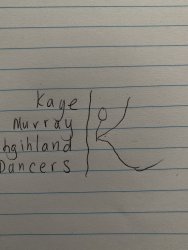 Kaye
Murray
hgihland
Dancers